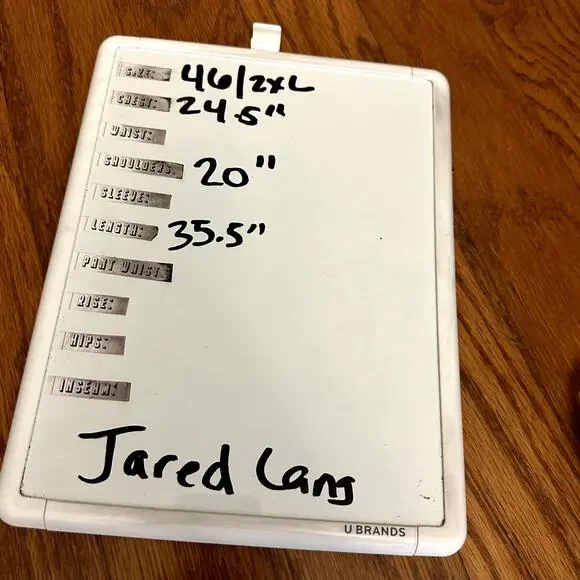 SIZE: 46/2XL
CHEST: 24.5"
WAIST:
SHOULDERS: 20"
SLEEVE:
LENGTH: 35.5"
PANT WAIST:
RISE:
HIPS:
INSEAM:
Jared Lang
U BRANDS